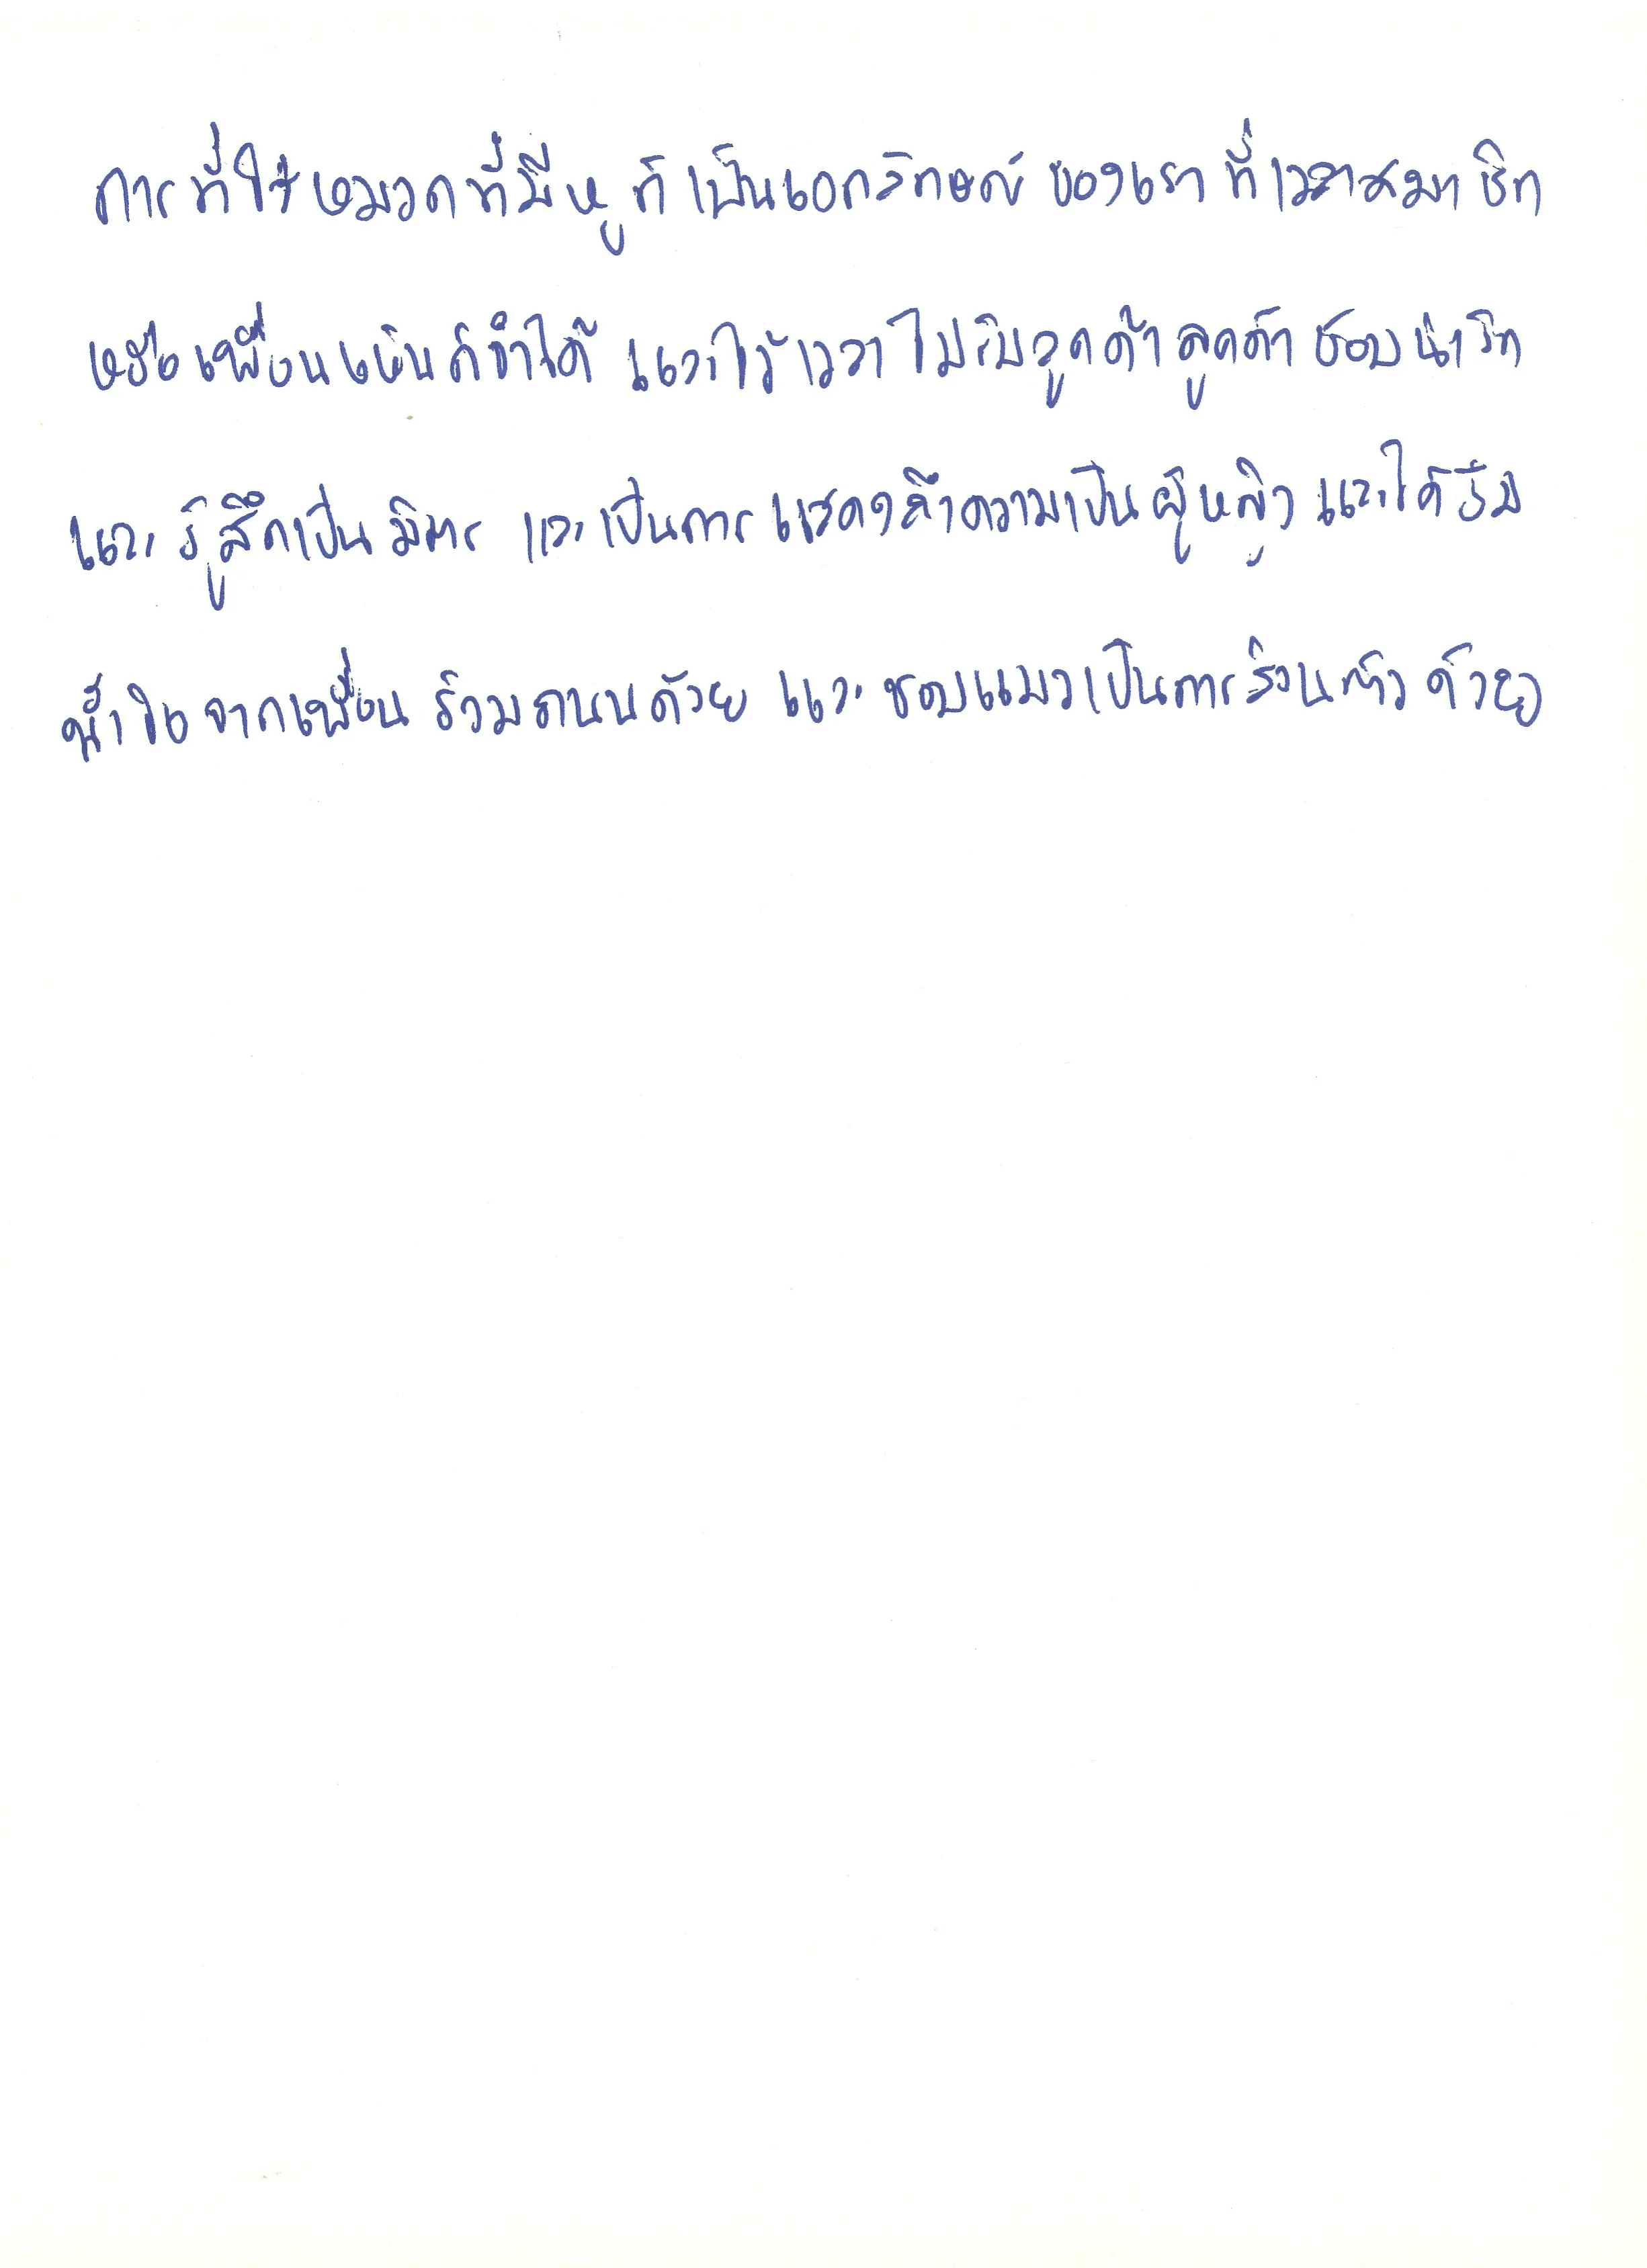 การที่ใช้หมวกที่มีหู ก็เป็นเอกลักษณ์ ของเรา ที่เวลาสมาชิก
หรือเพื่อนเห็นก็จำได้ และไว้เวลาไปรับลูกค้า ลูกค้าชอบน่ารัก
และ รู้สึกเป็น มิตร และเป็นการ แสดงถึงความเป็น ผู้หญิง และได้รับ
น้ำใจ จากเพื่อน ร่วมถนนด้วย และ ชอบแมวเป็นการส่วนตัว ด้วย